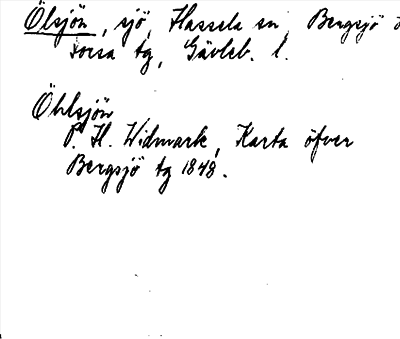 Ölsjön, sjö, Hassela sn, Bergsjö
Forsa tg, Gävleb. l.
Öhlsjön
P. H. Widmark, Karta öfver
Bergsjö tg 1848.